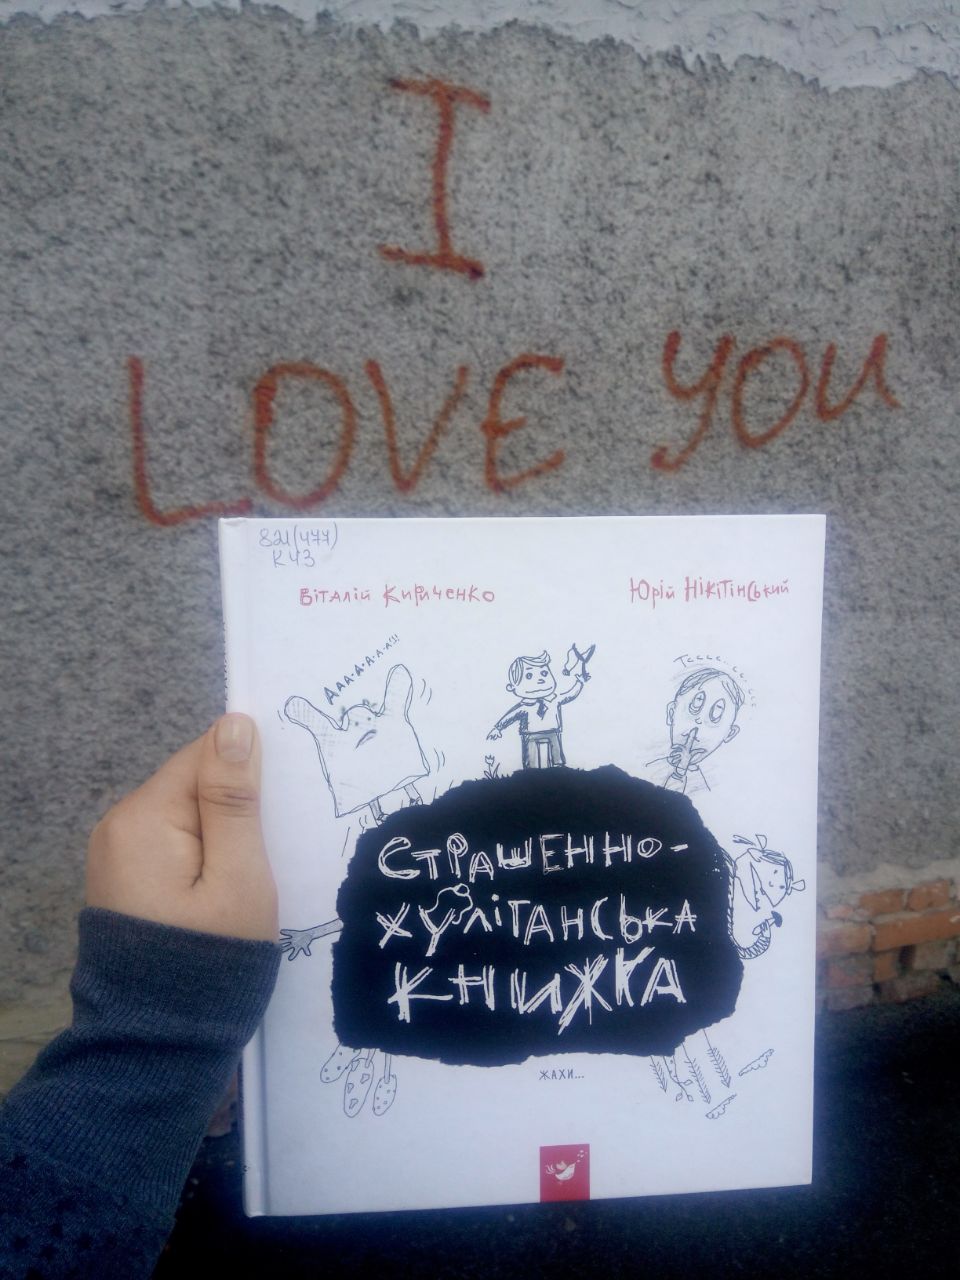 I
LOVE YOU
821(477)
К43
Віталій Кириченко
Юрій Нікітінський
Ааа-а-а-а-а!!!
Тссс...с...ссс
СТРАШЕННО-
ХУЛІГАНСЬКА
КНИЖКА
ЖАХИ...